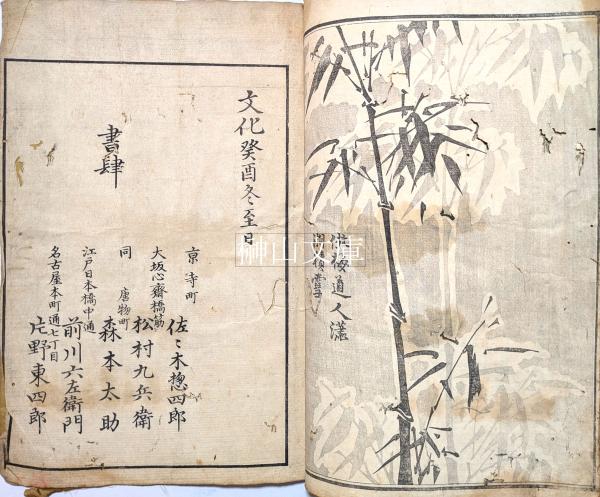 道人瀟
文化癸酉冬至日
書肆
京寺町
佐〻木惣四郎
大坂心齋橋筋
松村九兵衛
同唐物町
森本太助
江戸日本橋中通
前川六左衛門
名古屋本町通七丁目
片野東四郎
榊山文庫